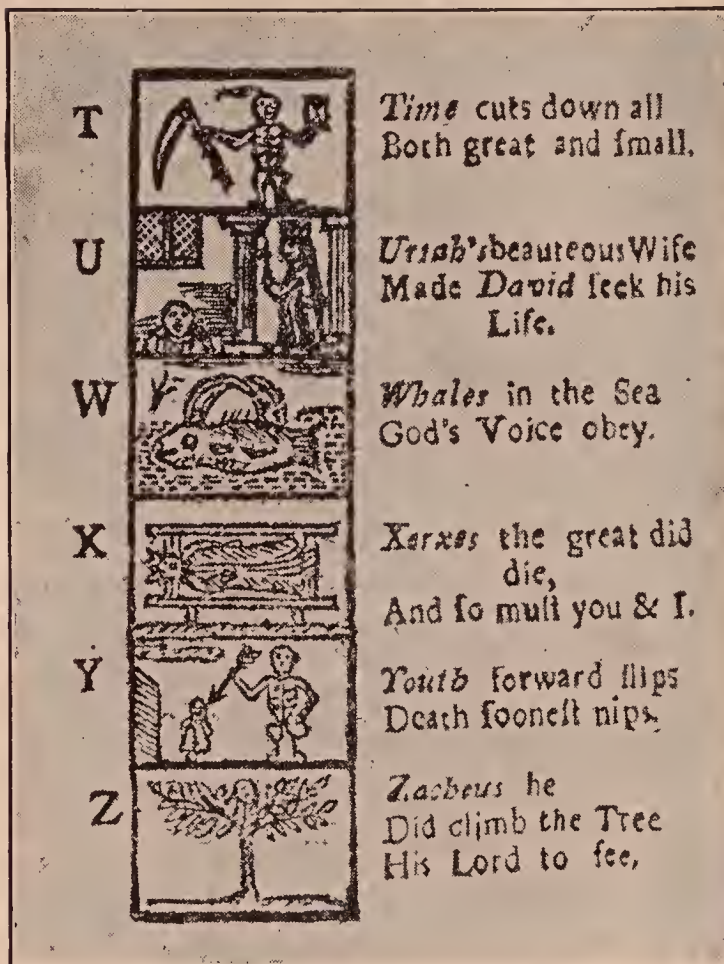 T
Time cuts down all
Both great and ſmall.
U
Uriah's beauteous Wife
Made David ſeek his
Life.
W
Whales in the Sea
God's Voice obey.
X
Xerxes the great did
die,
And ſo muſt you & I.
Y
Youth forward ſlips
Death ſooneſt nips.
Z
Zacheus he
Did climb the Tree
His Lord to ſee,